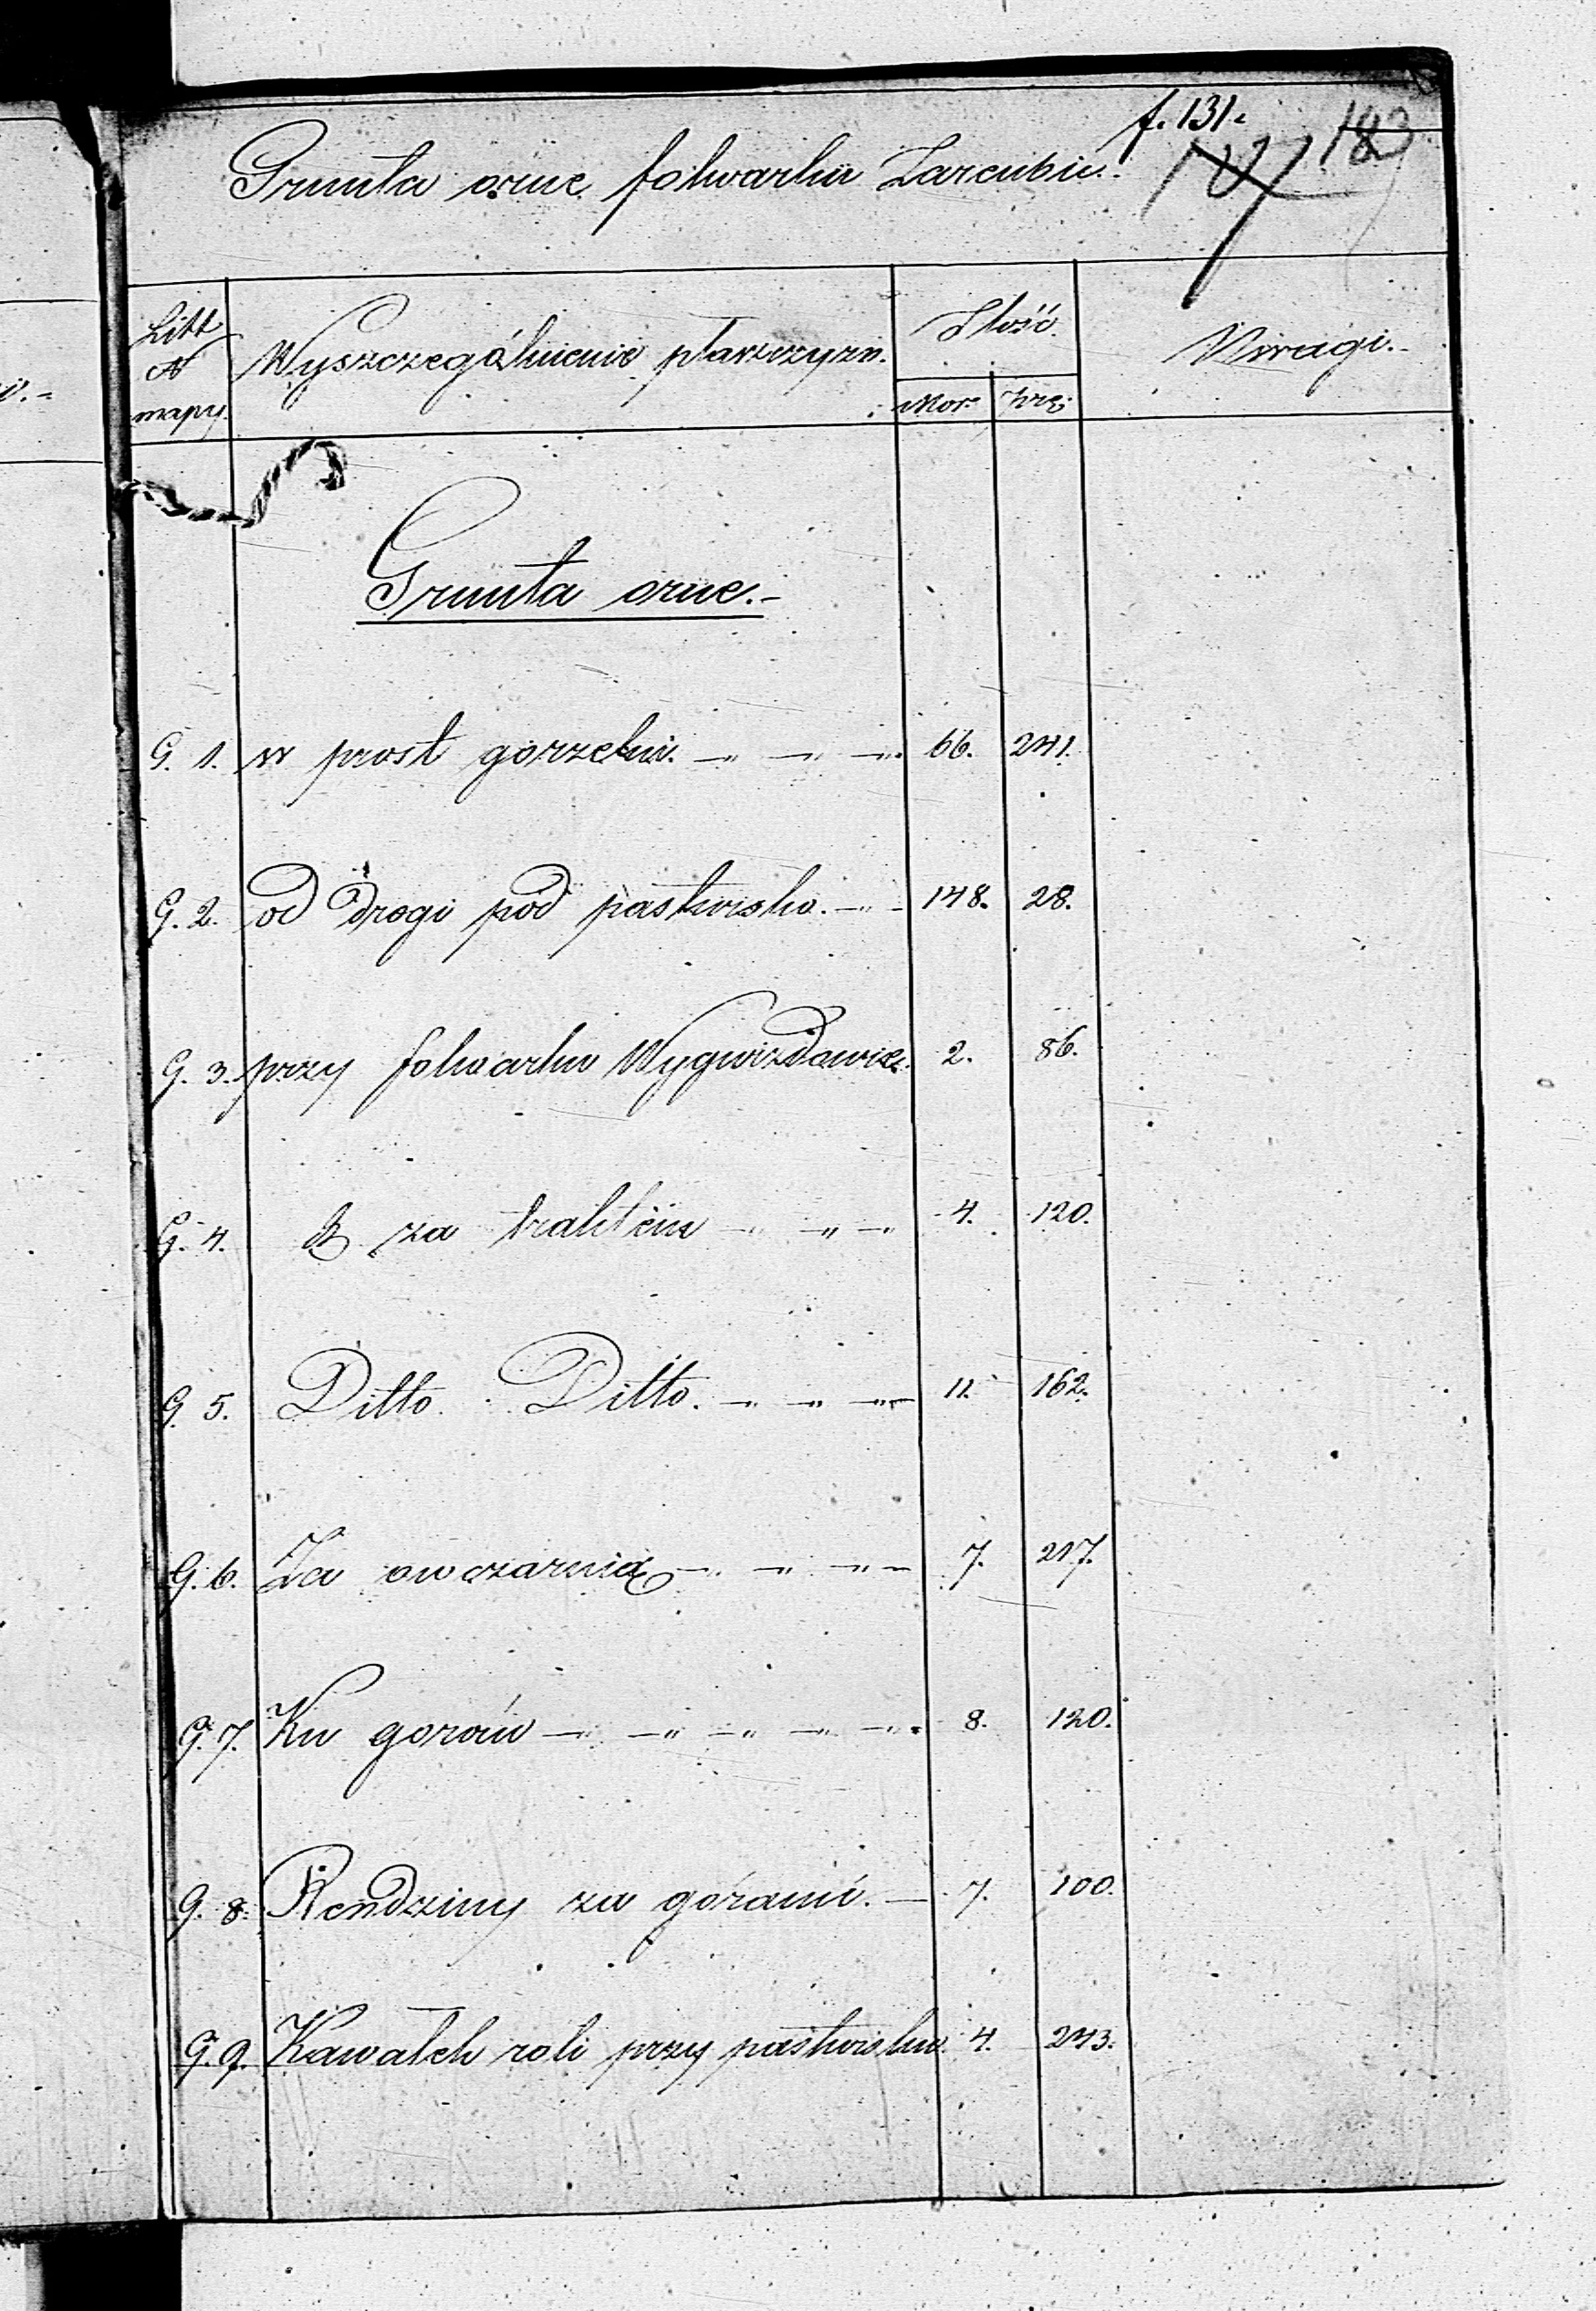 f. 131. 183
Grunta orne folwarku Zarembin.
Litt
N
mapy.
Wyszczególnienie płaszczyzn.
Ilość
Mor. Prę.
Uwagi.
Grunta orne.-
G. 1. w prost gorzelni. 66. 241.
G. 2. od drogi pod pastwisko. 148. 28.
G. 3. przy folwarku Wygwizdowie 2. 86.
G. 4. za traktem 4. 120.
G. 5. Ditto Ditto. 11. 162.
G. 6. Za owczarnią 7. 217.
G. 7. Ku goróm 8. 120.
G. 8. Rendziny za górami. 7. 100.
G. 9. Kawałek roli przy pastwisku 4. 243.